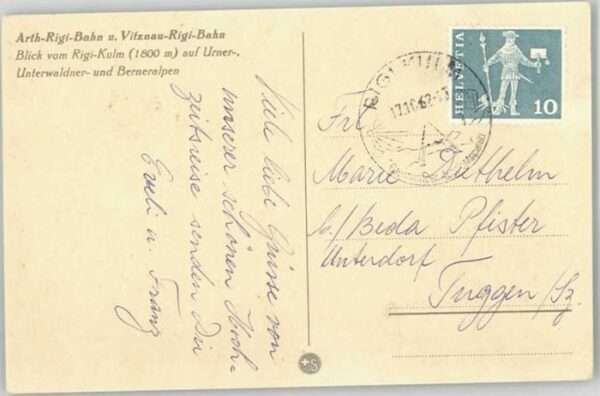 Arth-Rigi-Bahn u. Vitznau-Rigi-Bahn
Blick vom Rigi-Kulm (1800 m) auf Urner-,
Unterwaldner- und Berneralpen
Viele liebe Grüsse von
unserer schönen Hoch-
zeitsreise senden Dir
Eveli u. Franz
HELVETIA
10
RIGI KULM
17.10.62
Frl.
Marie Diethelm
b./ Beda Pfister
Unterdorf
Tuggen /Sz.